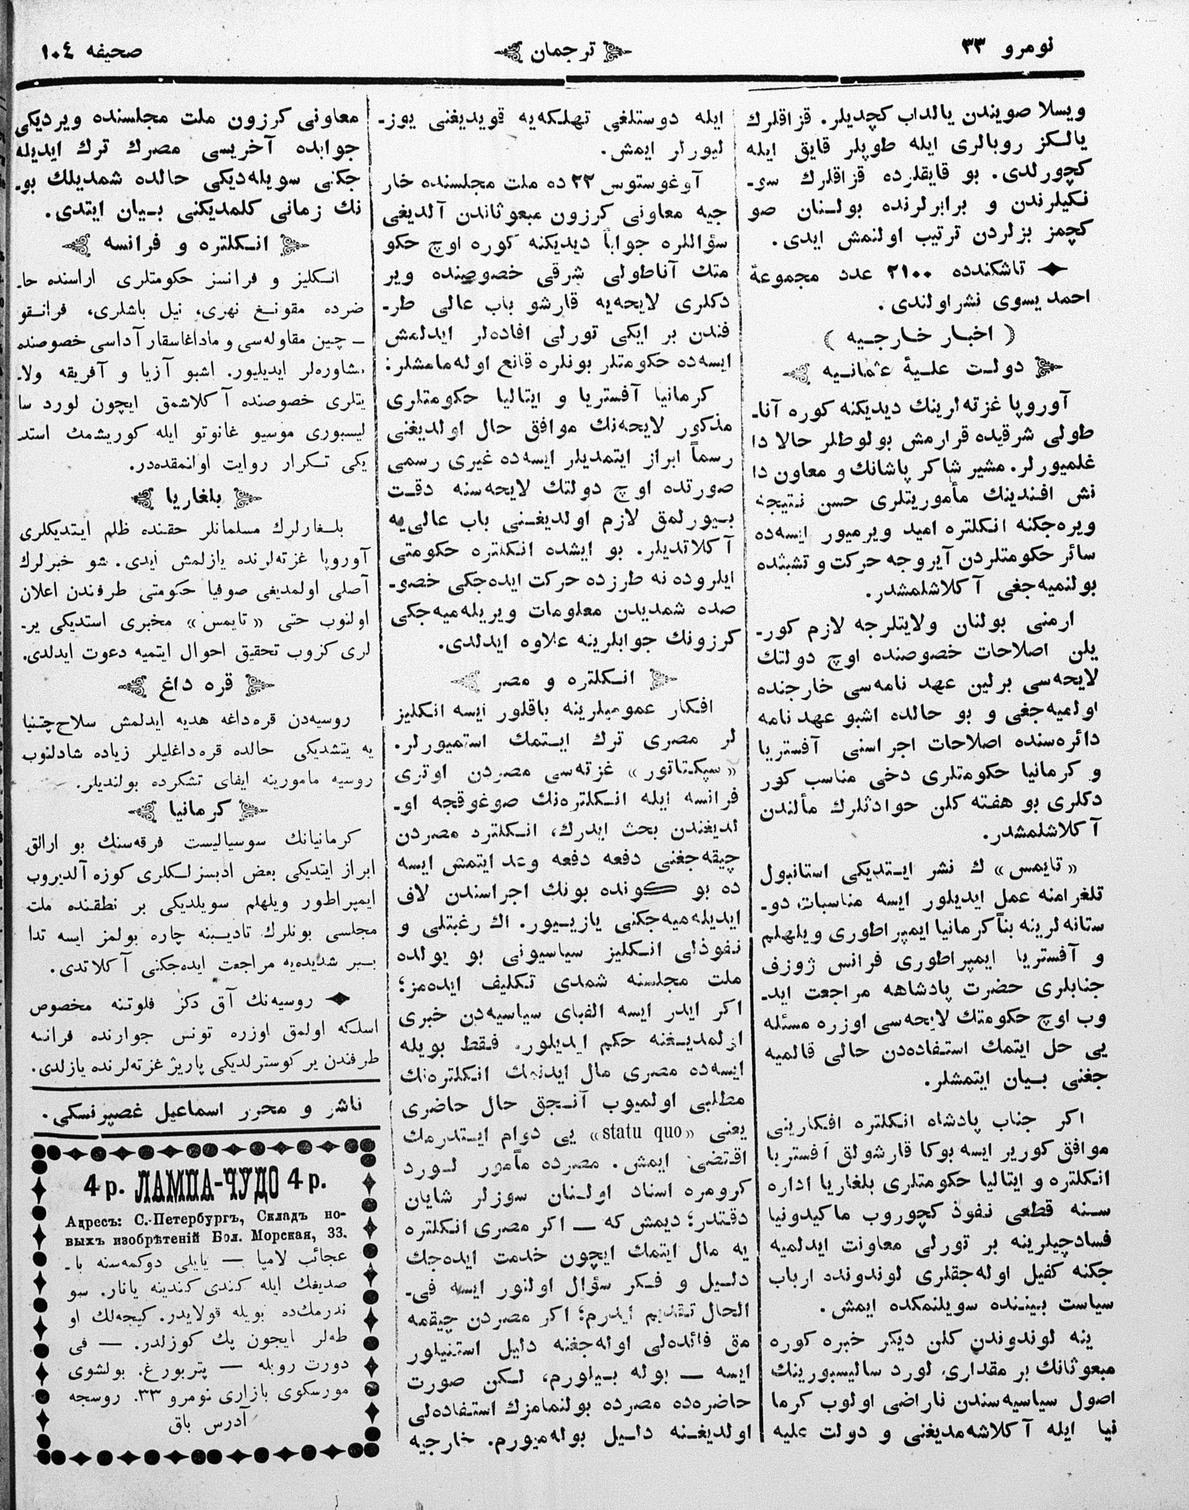 نومرو ٣٣
ترجمان
صحيفه ١٠٤
ويسلا صويندن يالداب كچديلر. قزاقلرك
يالكز روبالرى ايله طوپلر قايق ايله
كچورلدى. بو قايقلرده قزاقلرك سو-
نكيلرندن و برابرلرنده بولنان صو
كچمز بزلردن ترتيب اولنمش ايدى.
تاشكندده ٢١٠٠ عدد مجموعة
احمد يسوى نشر اولندى.
( اخبار خارجيه )
دولت عليۀ عثمانيه
آوروپا غزته‌لرينك ديديكنه كوره آنا-
طولى شرقيده قرارمش بولوطلر حالا دا
غلميورلر. مشير شاكر پاشانك و معاون دا
نش افندينك مأموريتلرى حسن نتيجه
ويره‌جكنه انكلتره اميد ويرميور ايسه‌ده
سائر حكومتلردن آيروجه حركت و تشبثده
بولنميه‌جغى آكلاشلمشدر.
ارمنى بولنان ولايتلرجه لازم كور-
يلن اصلاحات خصوصنده اوچ دولتك
لايحه‌سى برلين عهد نامه‌سى خارجنده
اولميه‌جغى و بو حالده اشبو عهد نامه
دائره‌سنده اصلاحات اجراسنى آفستريا
و كرمانيا حكومتلرى دخى مناسب كور
دكلرى بو هفته كلن حوادثلرك مألندن
آكلاشلمشدر.
«تايمس» ك نشر ايتديكى استانبول
تلغرامنه عمل ايديلور ايسه مناسبات دو-
ستانه‌لرينه بناً كرمانيا ايمپراطورى ويلهلم
و آفستريا ايمپراطورى فرانس ژوزف
جنابلرى حضرت پادشاهه مراجعت ايد-
وب اوچ حكومتك لايحه‌سى اوزره مسئله
يى حل ايتمك استفاده‌دن حالى قالميه
جغنى بيان ايتمشلر.
اكر جناب پادشاه انكلتره افكارينى
موافق كورير ايسه بوكا قارشولق آفستريا
انكلتره و ايتاليا حكومتلرى بلغاريا اداره
سنه قطعى نفوذ كچوروب ماكيدونيا
فسادچيلرينه بر تورلى معاونت ايدلميه
جكنه كفيل اوله‌جقلرى لوندونده ارباب
سياست بيننده سويلنمكده ايمش.
ينه لوندوندن كلن ديكر خبره كوره
مبعوثانك بر مقدارى لورد ساليسبورينك
اصول سياسيه‌سندن ناراضى اولوب كرما
نيا ايله آكلاشه‌مديغنى و دولت عليه
ايله دوستلغى تهلكه‌يه قويديغنى يوز-
ليورلر ايمش.
آوغوستوس ٢٢ ده ملت مجلسنده خار
جيه معاونى كرزون مبعوثاندن آلديغى
سؤاللره جواباً ديديكنه كوره اوچ حكو
متك آناطولى شرقى خصوصنده وير
دكلرى لايحه‌يه قارشو باب عالى طر-
فندن بر ايكى تورلى افاده‌لر ايدلمش
ايسه‌ده حكومتلر بونلره قانع اوله‌مامشلر:
كرمانيا آفستريا و ايتاليا حكومتلرى
مذكور لايحه‌نك موافق حال اولديغنى
رسماً ابراز ايتمديلر ايسه‌ده غيرى رسمى
صورتده اوچ دولتك لايحه‌سنه دقت
بيورلمق لازم اولديغنى باب عالى‌يه
آكلاتديلر. بو ايشده انكلتره حكومتى
ايلروده نه طرزده حركت ايده‌جكى خصو-
صده شمديدن معلومات ويريله‌ميه‌جكى
كرزونك جوابلرينه علاوه ايدلدى.
انكلتره و مصر
افكار عموميلرينه باقلور ايسه انكليز
لر مصرى ترك ايتمك استميورلر.
«سپكتاتور» غزته‌سى مصردن اوترى
فرانسه ايله انكلتره‌نك صوغوقجه او-
لديغندن بحث ايدرك، انكلتره مصردن
چيقه‌جغنى دفعه دفعه وعد ايتمش ايسه
ده بو كونده بونك اجراسندن لاف
ايديله‌ميه‌جكنى يازييور. اك رغبتلى و
نفوذلى انكليز سياسيونى بو يولده
ملت مجلسنه شمدى تكليف ايده‌مز؛
اكر ايدر ايسه الفباى سياسيه‌دن خبرى
اولمديغنه حكم ايديلور. فقط بويله
ايسه‌ده مصرى مال ايدنمك انكلتره‌نك
مطلبى اولميوب آنجق حال حاضرى
يعنى «statu quo» يى دوام ايتدرمك
اقتضى ايمش. مصرده مأمور لورد
كرومره اسناد اولنان سوزلر شايان
دقتدر؛ ديمش كه — اكر مصرى انكلتره
يه مال ايتمك ايچون خدمت ايده‌جك
دليل و فكر سؤال اولنور ايسه فى-
الحال تقديم ايدرم؛ اكر مصردن چيقمه
مق فائده‌لى اوله‌جغنه دليل استنيلور
ايسه — بوله بيلورم، لكن صورت
حاضره‌ده مصرده بولنمامزك استفاده‌لى
اولديغنه دليل بوله‌ميورم. خارجيه
معاونى كرزون ملت مجلسنده ويرديكى
جوابده آخريسى مصرك ترك ايديله
جكنى سويله‌ديكى حالده شمديلك بو-
نك زمانى كلمديكنى بيان ايتدى.
انكلتره و فرانسه
انكليز و فرانسز حكومتلرى اراسنده حا-
ضرده مقونغ نهرى، نيل باشلرى، فرانقو
– چين مقاوله‌سى و ماداغاسقار آداسى خصوصنده
مشاوره‌لر ايديليور. اشبو آزيا و آفريقه ولا-
يتلرى خصوصنده آكلاشمق ايچون لورد سا
ليسبورى موسيو غانوتو ايله كوريشمك استد
يكى تكرار روايت اولنمقده‌در.
بلغاريا
بلغارلرك مسلمانلر حقنده ظلم ايتديكلرى
آوروپا غزته‌لرنده يازلمش ايدى. شو خبرلرك
آصلى اولمديغى صوفيا حكومتى طرفندن اعلان
اولنوب حتى «تايمس» مخبرى استديكى ير-
لرى كزوب تحقيق احوال ايتميه دعوت ايدلدى.
قره داغ
روسيه‌دن قره‌داغه هديه ايدلمش سلاح چتنيا
يه يتشديكى حالده قره‌داغليلر زياده شادلنوب
روسيه مامورينه ايفاى تشكرده بولنديلر.
كرمانيا
كرمانيانك سوسياليست فرقه‌سنك بو ارالق
ابراز ايتديكى بعض ادبسزلكلرى كوزه آلديروب
ايمپراطور ويلهلم سويلديكى بر نطقنده ملت
مجلسى بونلرك تاديبنه چاره بولمز ايسه تدا
بير شديده‌يه مراجعت ايده‌جكنى آكلاتدى.
روسيه‌نك آق دكز فلوتنه مخصوص
اسلكه اولمق اوزره تونس جوارنده فرانسه
طرفندن ير كوسترلديكى پاريژ غزته‌لرنده يازلدى.
ناشر و محرر اسماعيل غصپرنسكى.
4 р. ЛАМПА-ЧУДО 4 р.
Адресъ: С.-Петербургъ, Складъ но-
выхъ изобрѣтеній Бол. Морская, 33.
عجائب لامپا — يايلى دوكمه‌سنه با-
صديغك ايله كندى كندينه يانار. سو
ندرمك‌ده بويله قولايدر. كيجه‌لك او
طه‌لر ايچون پك كوزلدر. — فى
دورت روبله — پتربورغ. بولشوى
مورسكوى بازارى نومرو ٣٣. روسجه
آدرس باق